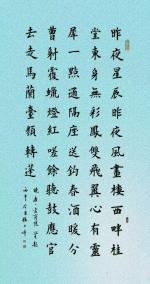 昨夜星辰昨夜風畫樓西畔桂
堂東身無彩鳳雙飛翼心有靈
犀一點通隔座送鈎春酒暖分
曹射覆蠟燈紅嗟餘聽鼓應官
去走馬蘭臺類轉蓬
晚唐李商隱無題